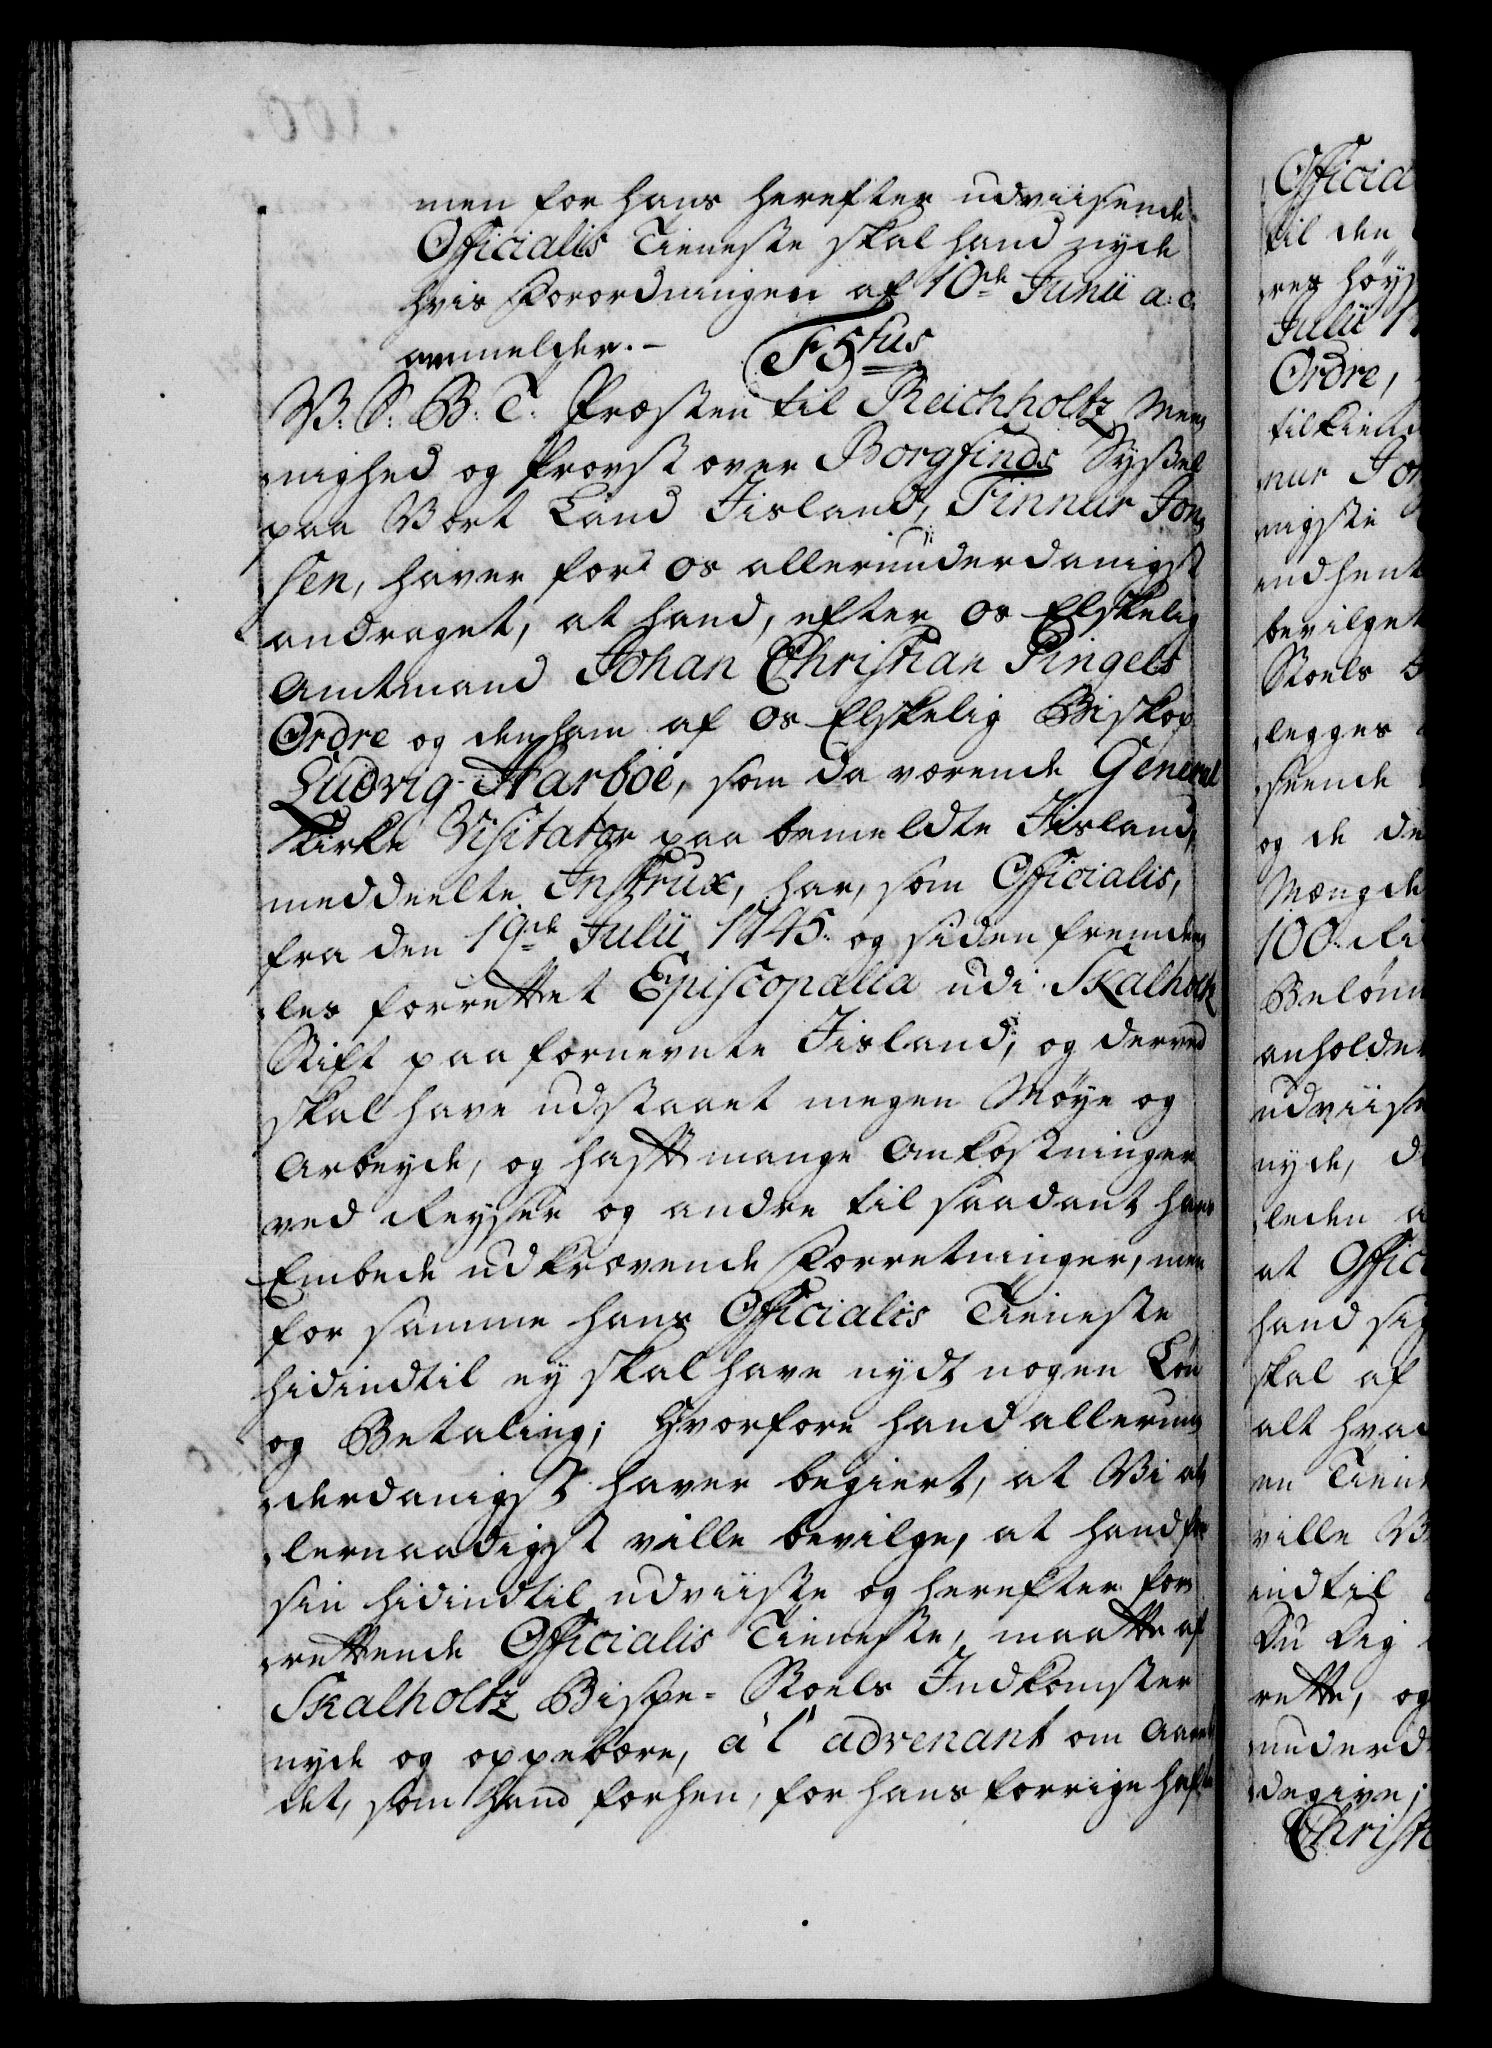 men for hans herefter udviisende
Officialis Tieneste skal hand nyde
hvis Forordningen af 10de Junii a: c.
anmelder. – F 5tus
V: S: B: T: Præsten til Reichholtz Mee
nighed og Provst over Borgfinds Syssel
paa Vort Land Iisland, Finnur Jon
sen, haver for Os allerunderdanigst
andraget, at hand, efter Os Elskelig
Amtmand Johan Christian Pingels
Ordre og den ham af Os Elskelig Biskop
Ludvig Harboe, som da værende General
Kirke Visitator paa bemeldte Iisland,
meddeelte Instrux, har, som Officialis,
fra den 19de Julii 1745. og siden fremde
les forrettet Episcopalia udi Skalholtz
Stift paa fornevnte Iisland, og derved
skal have udstaaet megen Møye og
Arbeyde, og hafft mange Omkostninger
ved Reyser og andre til saadant hans
Embede udkrævende Forretninger, men
for samme hans Officialis Tieneste
hidindtil ey skal have nydt nogen Løn
og Betaling; Hvorfore hand allerun
derdanigst haver begiert, at Vi al
lernaadigst ville bevilge, at hand for
sin hidindtil udviiste og herefter for
rettende Officialis Tieneste, maatte af
Skalholtz Bispe-Stoels Indkomster
nyde og oppebære, á l' advenant om Aaret
det, som hand forhen, for hans forrige hafte
Officia
til den
res høys
Julii 1
Ordre,
tilkiend
nur Jon
nigste
indhent
bevilget
Stoels B
legges
seende
og de de
Mængde
100. Ri
Belønn
anholder
udviise
nyde, d
leden a
at Offici
hand sig
skal af
alt hvad
en Tiene
ville V
indtil
Du Dig
rette, og
underd
degive;
Christ